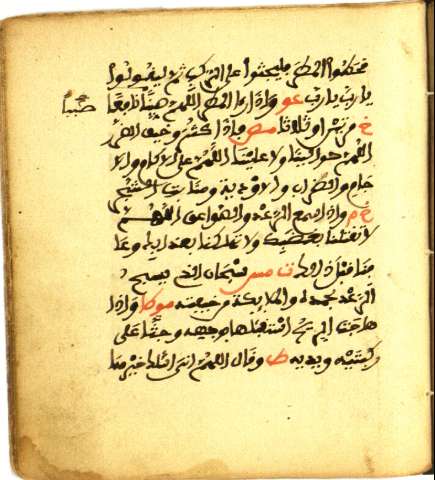 قحطوا المطر فليجثوا على الركب ثم ليقولوا
يا رب يا رب عو واذا راءا المطر اللهم هنيا نافعا
صيبا
خ مرتين او ثلاثا مص واذا كثر وخيف الضرر
اللهم حوالينا ولا علينا اللهم على الاكام والا
جام والظراب والاودية ومنابت الشجر
خ م واذا سمع الرعد والصواعق اللهم
لا تقتلنا بغضبك ولا تهلكنا بعذابك وعا
فنا قبل ذلك ت مس سبحان الذي يسبح
الرعد بحمده والملايكة من خيفته موطا واذا
هاجت الريح استقبلها بوجهه وجثا على
ركبتيه ويديه ط وقال اللهم اني اسئلك خير ما